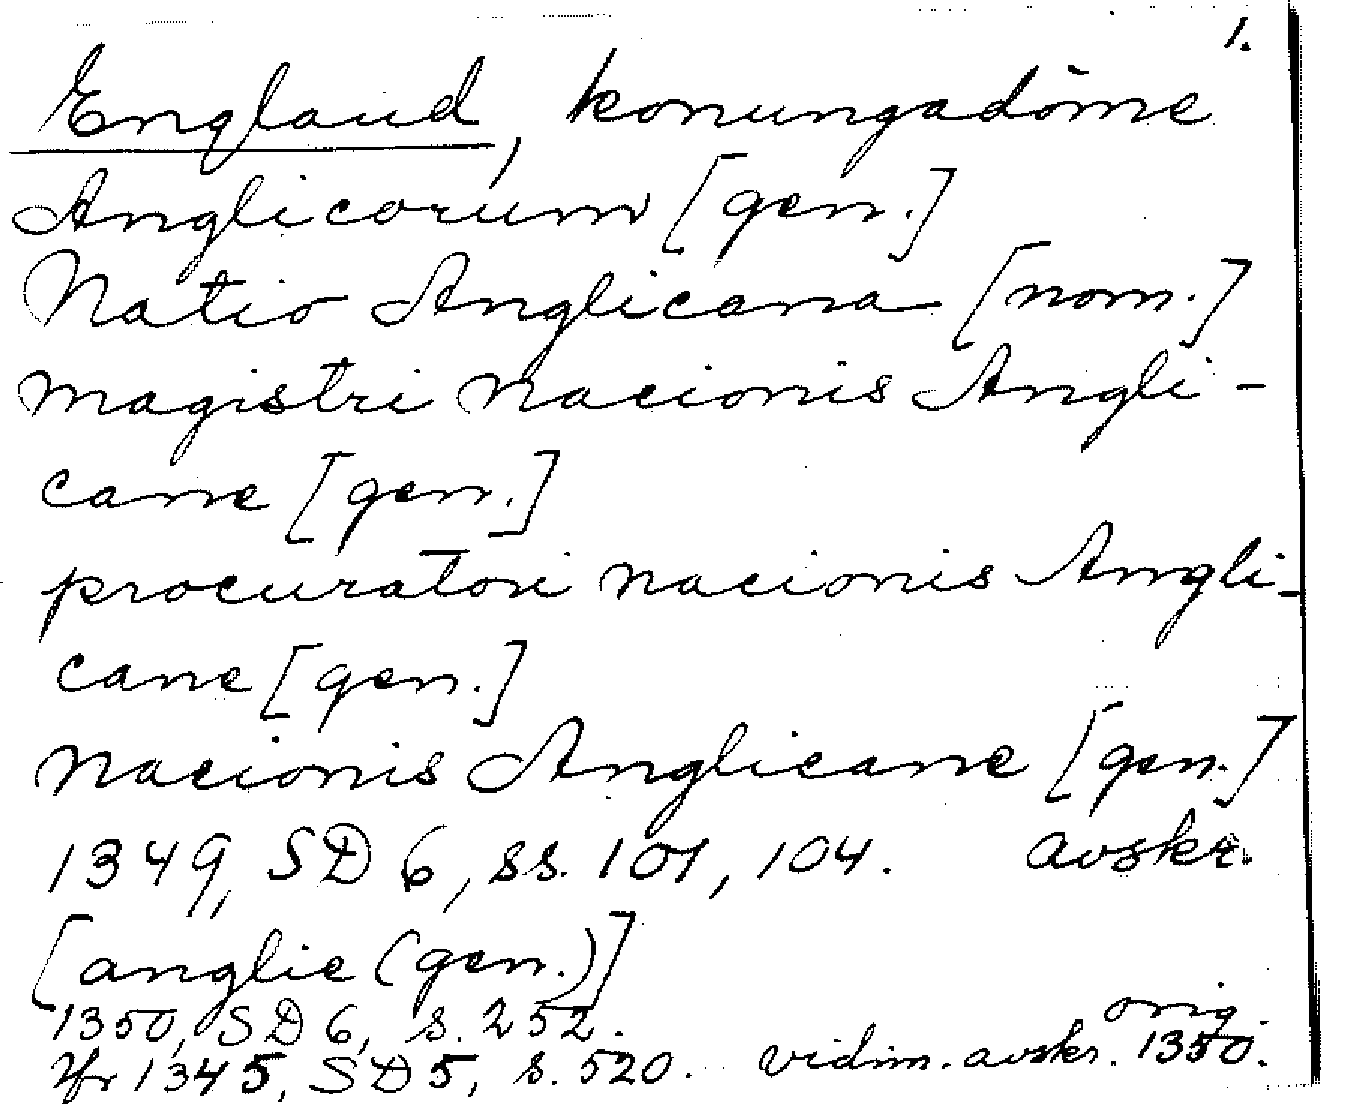 1.
England, konungadöme
Anglicorum [gen.]
Natio Anglicana [nom.]
magistri nacionis Angli-
cane [gen.]
procuratori nacionis Angli-
cane [gen.]
nacionis Anglicane [gen.]
1349, SD 6, ss. 101, 104. avskr.
[anglie (gen.)]
1350, SD 6, s. 252. orig.
Jfr 1345, SD 5, s. 520. vidim. avskr. 1350.